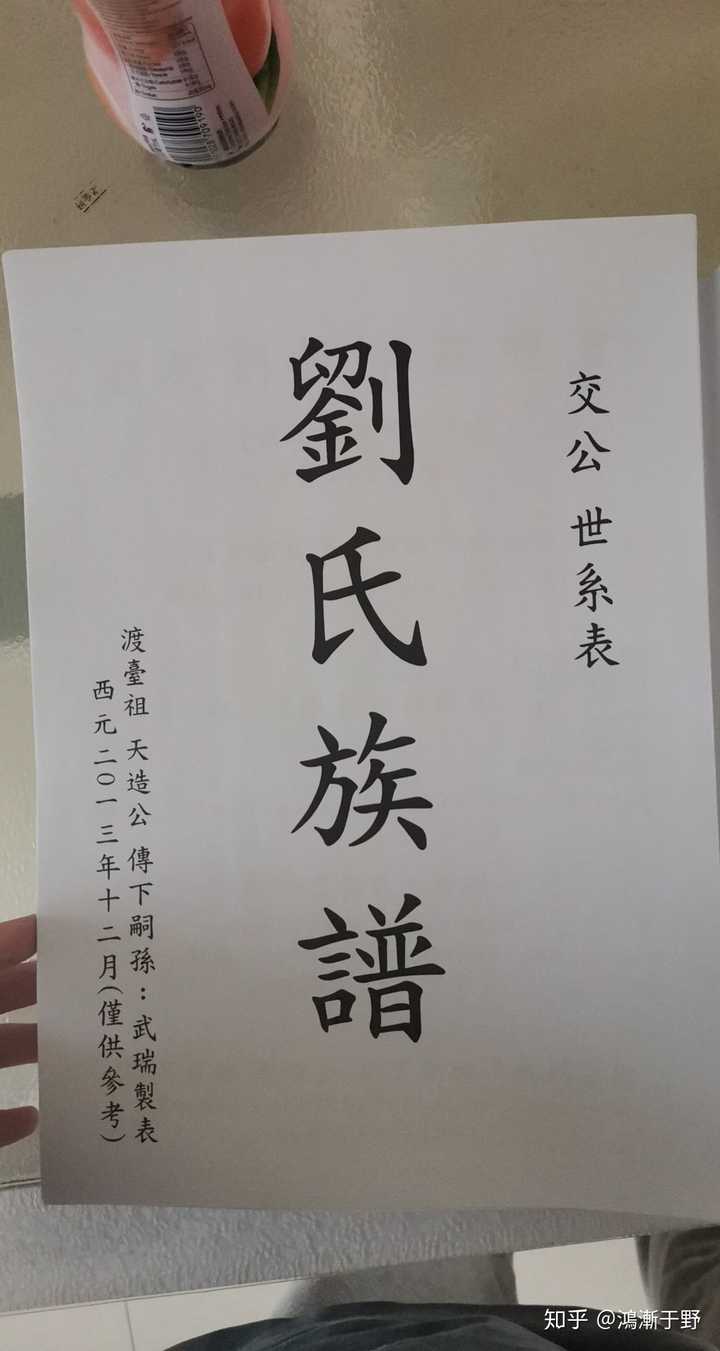 交公 世系表
劉氏族譜
渡臺祖 天造公 傳下嗣孫：武瑞製表
西元二〇一三年十二月(僅供參考)
知乎 @鴻漸于野